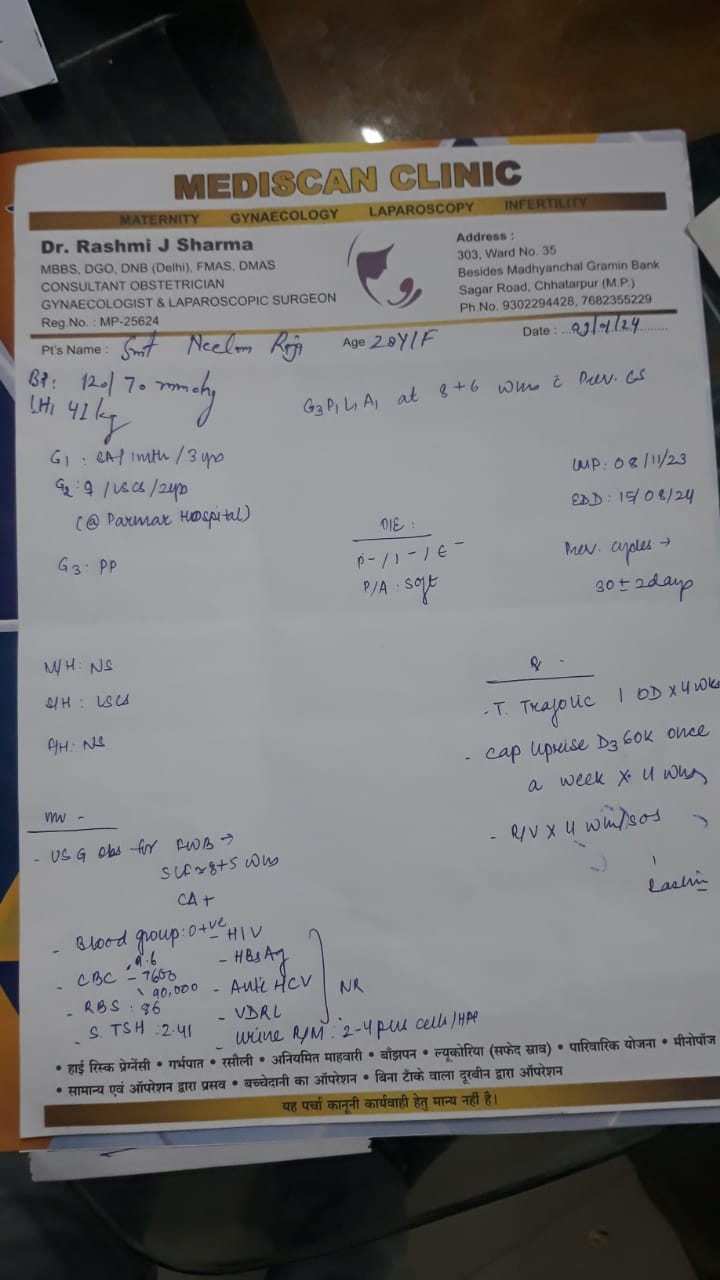 MEDISCAN CLINIC
MATERNITY GYNAECOLOGY LAPAROSCOPY INFERTILITY
Dr. Rashmi J Sharma
MBBS, DGO, DNB (Delhi), FMAS, DMAS
CONSULTANT OBSTETRICIAN
GYNAECOLOGIST & LAPAROSCOPIC SURGEON
Reg.No. : MP-25624
Address :
303, Ward No. 35
Besides Madhyanchal Gramin Bank
Sagar Road, Chhatarpur (M.P.)
Ph.No. 9302294428, 7682355229
Date : /24
Pt's Name : Smt Neelam Age 28Y/F
BP: 120/70 mmHg
41 kg
G3P1L1A1 at 8+6 wks c Prev. CS
G1 : SA/1mth/3yrs
G2 : /LSCS/2yrs
(@ Parmar Hospital)
G3 : PP
LMP: 08/11/23
EDD: 15/08/24
Prev. cycles →
30±2days
O/E :
P-/I-/E-
P/A : Soft
M/H : NS
S/H : LSCS
NS
Rx -
- T. 1 OD x 4 wks
- Cap Uprise D3 60K once
a week x 4 wks
- R/V x 4 wks/SOS
Inv -
- USG obs for FWB →
SLF ≈ 8+5 wks
CA+
- Blood group: O+ve
- CBC - 9.6
7600
90,000
- RBS : 86
- S. TSH : 2.41
- HIV
- HBsAg
- Anti HCV
- VDRL
NR
- Urine R/M : 2-4 pus cells/HPF
• हाई रिस्क प्रेग्नेंसी • गर्भपात • रसौली • अनियमित माहवारी • बाँझपन • ल्यूकोरिया (सफेद स्राव) • पारिवारिक योजना • मीनोपॉज
• सामान्य एवं ऑपरेशन द्वारा प्रसव • बच्चेदानी का ऑपरेशन • बिना टाँके वाला दूरबीन द्वारा ऑपरेशन
यह पर्चा कानूनी कार्यवाही हेतु मान्य नहीं है।